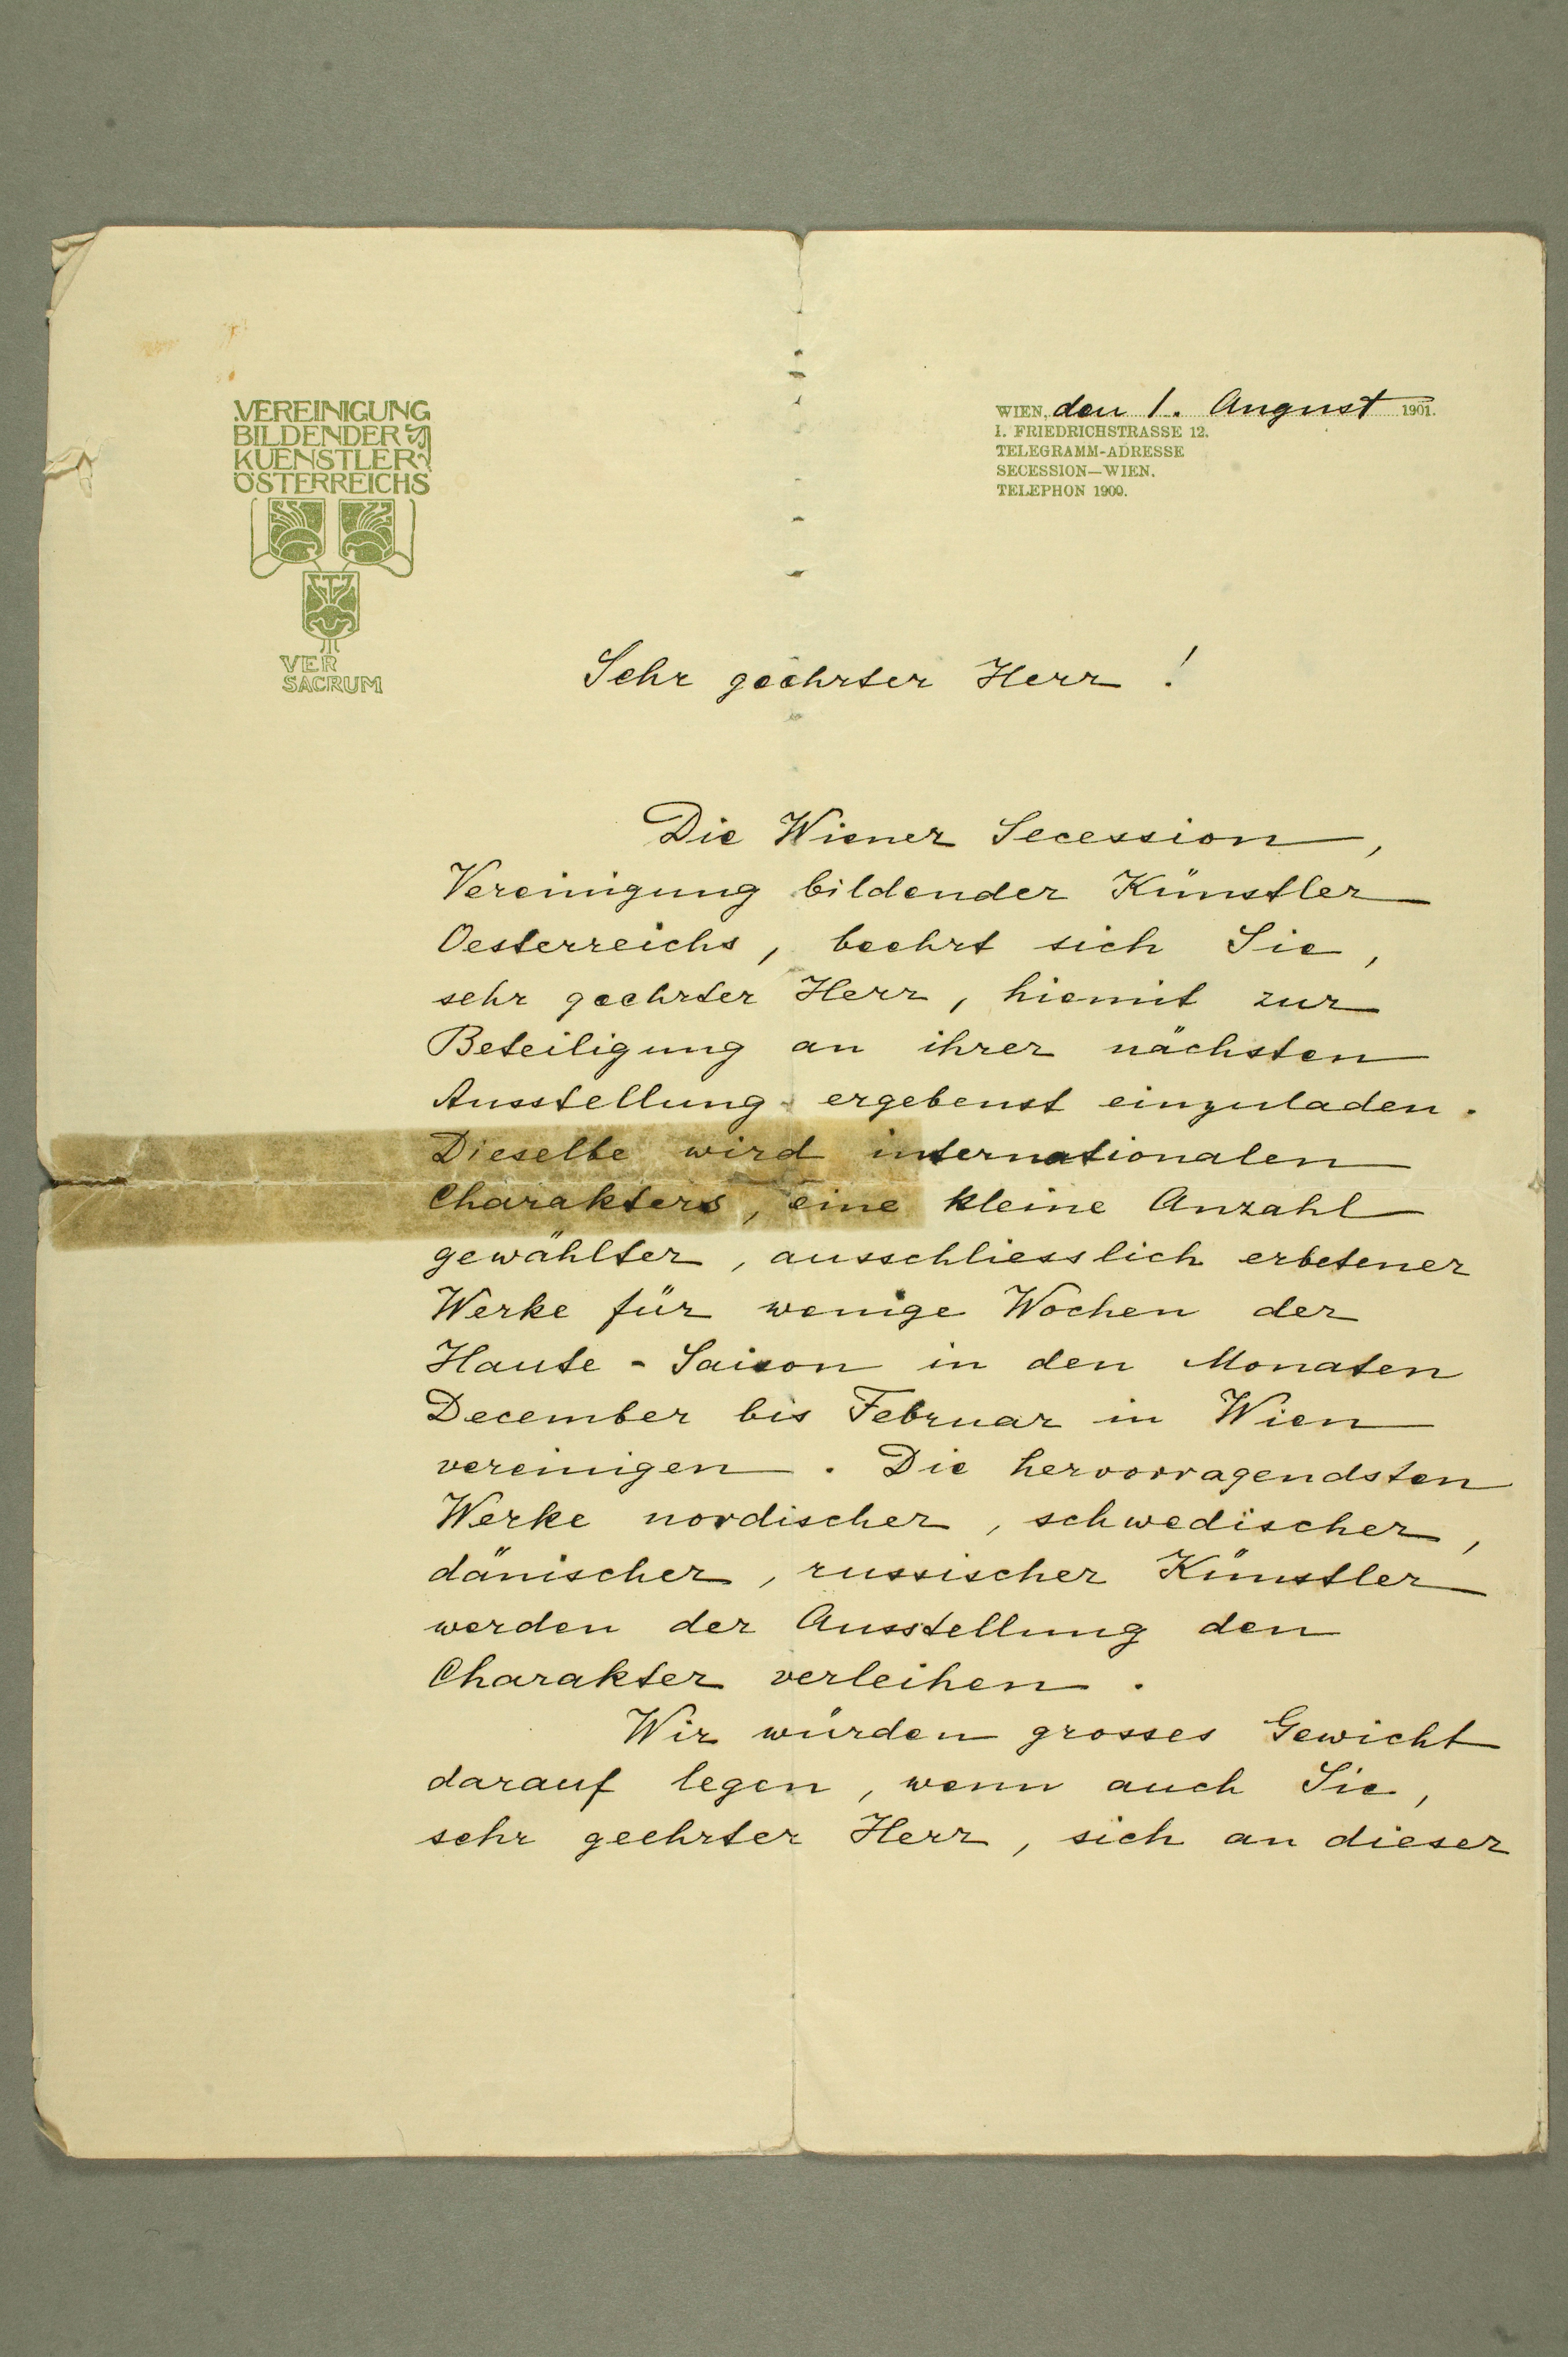 VEREINIGUNG
BILDENDER
KUENSTLER
ÖSTERREICHS
VER
SACRUM
WIEN, den 1. August 1901.
I. FRIEDRICHSTRASSE 12.
TELEGRAMM-ADRESSE
SECESSION—WIEN.
TELEPHON 1900.
Sehr geehrter Herr !
Die Wiener Secession,
Vereinigung bildender Künstler
Oesterreichs, beehrt sich Sie,
sehr geehrter Herr, hiemit zur
Beteiligung an ihrer nächsten
Ausstellung ergebenst einzuladen.
Dieselbe wird internationalen
Charakters, eine kleine Anzahl
gewählter, ausschliesslich erbetener
Werke für wenige Wochen der
Haute - Saison in den Monaten
December bis Februar in Wien
vereinigen. Die hervorragendsten
Werke nordischer, schwedischer,
dänischer, russischer Künstler
werden der Ausstellung den
Charakter verleihen.
Wir würden grosses Gewicht
darauf legen, wenn auch Sie,
sehr geehrter Herr, sich an dieser